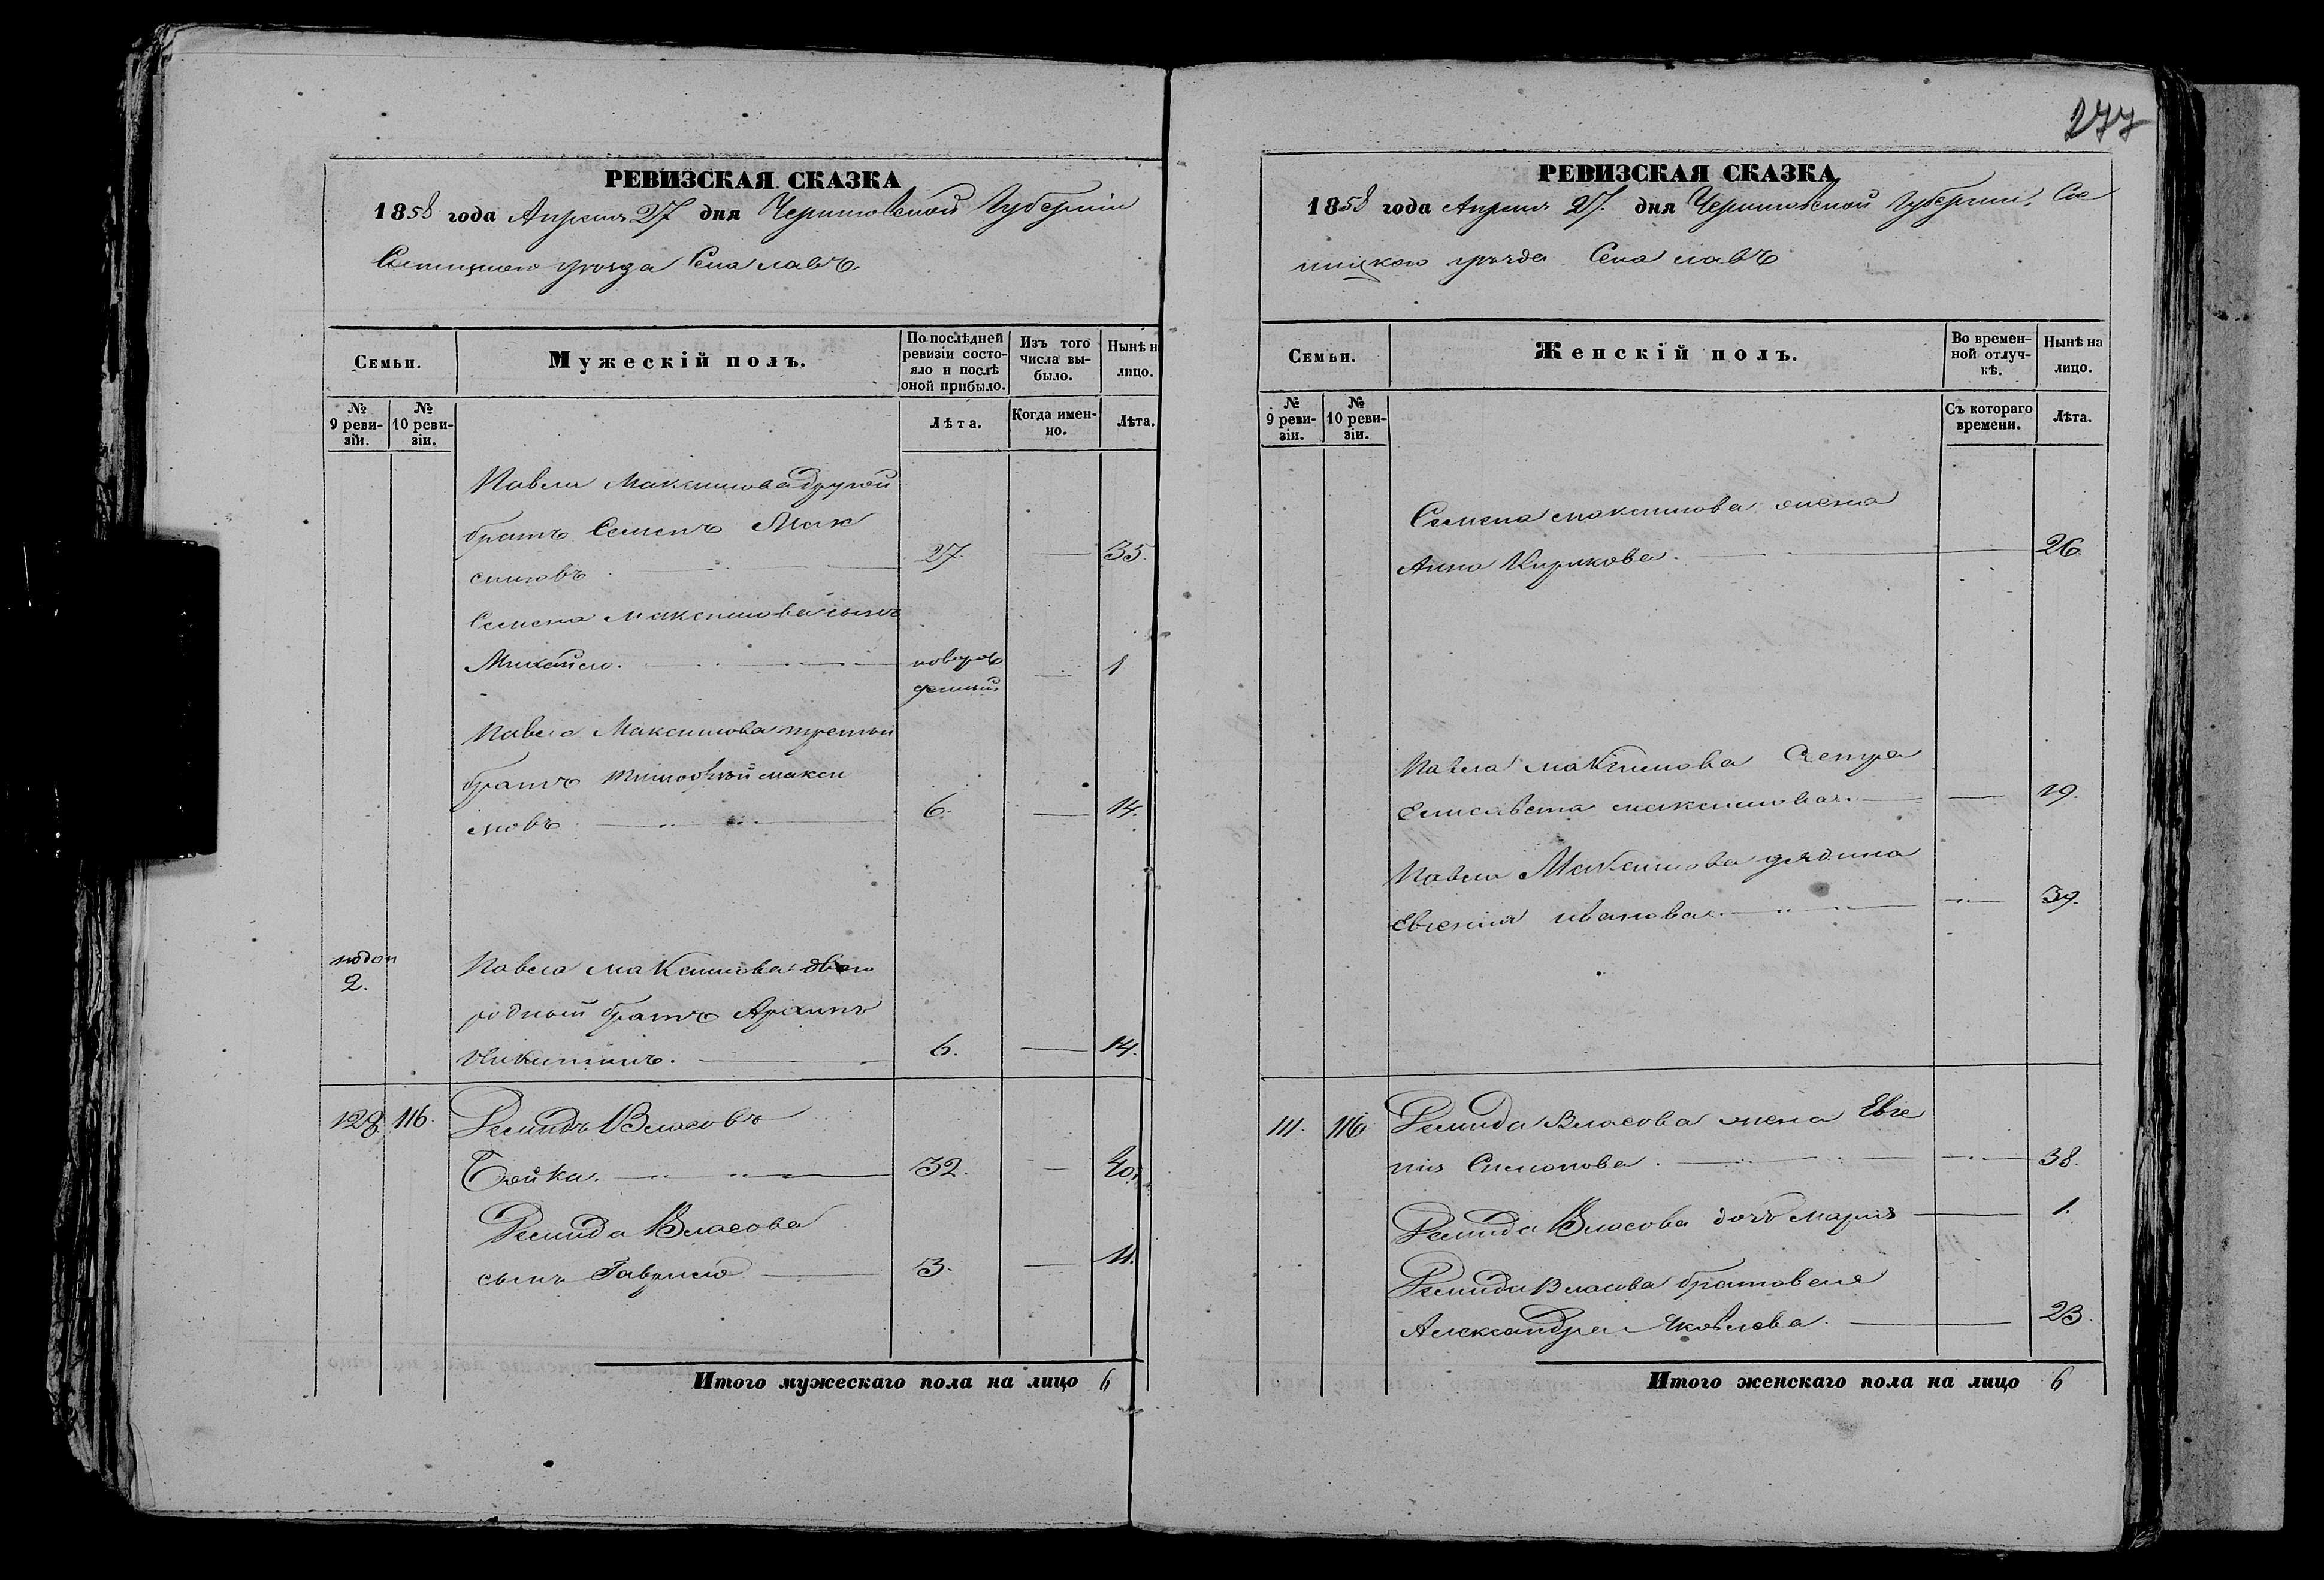 277
РЕВИЗСКАЯ СКАЗКА
1858 года Апреля 27 дня Черниговской Губерніи
уезда Села лавъ
Семьи.
Мужескій полъ.
По послѣдней ревизіи состояло и послѣ оной прибыло.
Изъ того числа выбыло.
Нынѣ н лицо.
№ 9 ревизіи.
№ 10 ревизіи.
Лѣта.
Когда именно.
Лѣта.
Павла Максимова другой
братъ Семенъ Мак
симовъ 27 35.
Семена Максимова сынъ
Михайло. новорож 1
денный
Павла Максимова третий
братъ Тимофей макси
мовъ 6. 14.
2. Павла Максимова двою
родный братъ
Никитинъ. 6. 14.
128 116. Демидъ Власовъ
Бойка. 32. 40.
Демида Власова
сынъ Гаврило 3. 11.
Итого мужескаго пола на лицо 6
РЕВИЗСКАЯ СКАЗКА
1858 года Апреля 27. дня Черниговской Губернии, Со
ницкого уезда Села лавъ
Семьи.
Женскій полъ.
Во временной отлучкѣ.
Нынѣ на лицо.
№ 9 ревизіи.
№ 10 ревизіи.
Съ котораго времени.
Лѣта.
Семена максимова жена
Анна Кирикова. 26.
Павла максимова Сестра
Елисавета максимова. 19.
Павла Максимова дядина
Евгения иванова. 39.
111. 116 Демида Власова жена Евге
ния Симонова. 38.
Демида Власова дочь мария 1.
Демида Власова братовая
Александра Яковлева. 23.
Итого женскаго пола на лицо 6